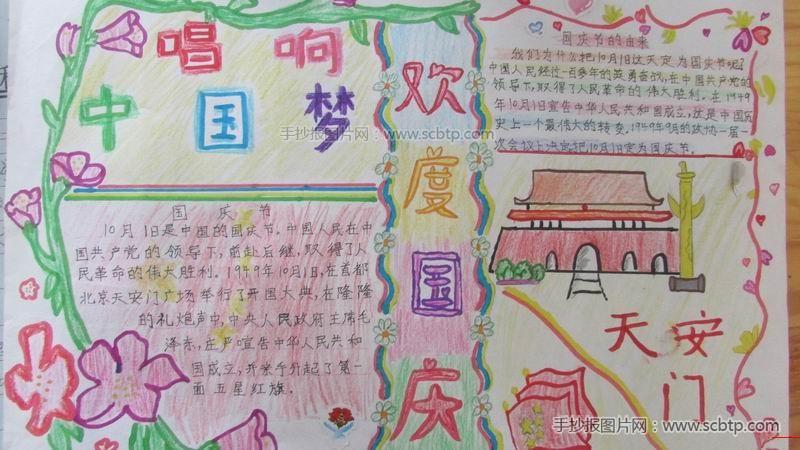 唱响
中国梦
国庆节
10月1日是中国的国庆节。中国人民在中
国共产党的领导下，前赴后继，取得了人
民革命的伟大胜利。1949年10月1日，在首都
北京天安门广场举行了开国大典，在隆隆
的礼炮声中，中央人民政府主席毛
泽东，庄严宣告中华人民共和
国成立，并亲手升起了第一
面五星红旗。
欢
度
国
庆
国庆节的由来
我们为什么把10月1日这天定为国庆节呢?
中国人民经过一百多年的英勇奋战，在中国共产党的
领导下，取得了人民革命的伟大胜利。在1949
年10月1日宣告中华人民共和国成立，这是中国历
史上一个最伟大的转变。1949年9月的政协一届一
次会议上决定把10月1日定为国庆节。
天安
门
手抄报图片网：www.scbtp.com
手抄报图片网：www.scbtp.com